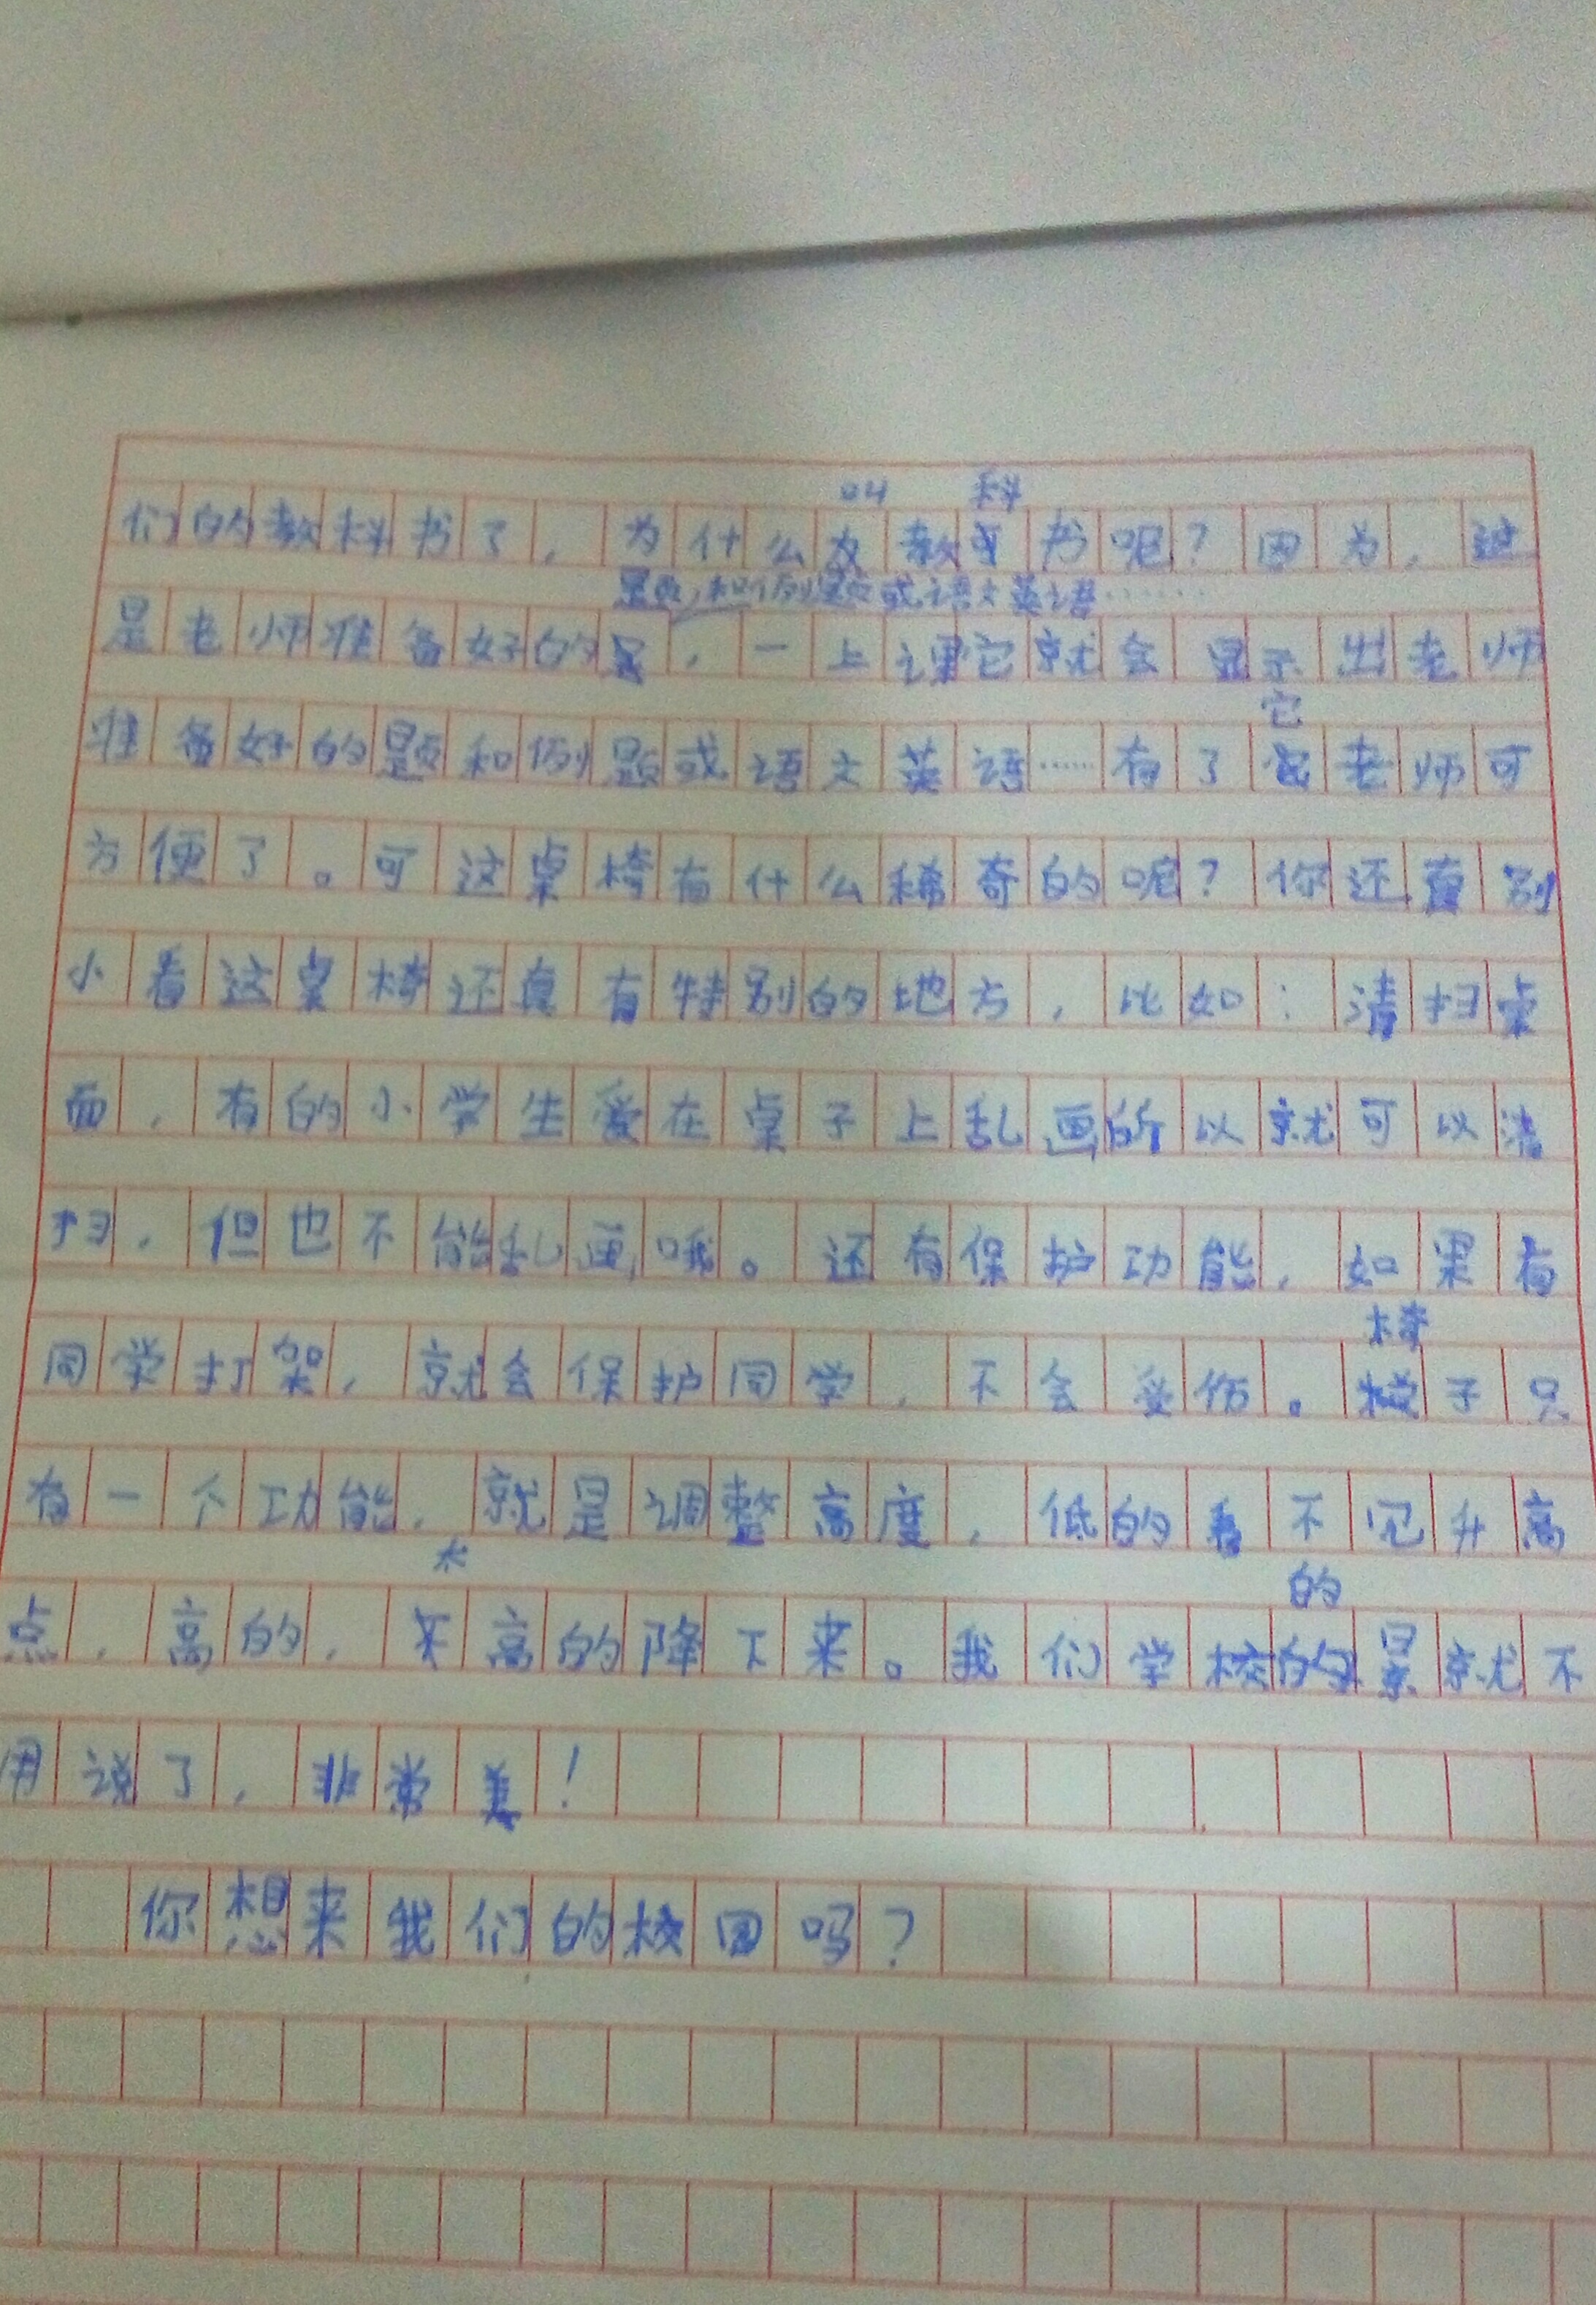 叫 科
们的教科书了，为什么教书呢？因为，这
题和例题或语文英语……
是老师准备好的，一上课它就会显示出老师
它
准备好的题和例题或语文英语……有了老师可
方便了。可这桌椅有什么稀奇的呢？你还真别
小看这桌椅还真有特别的地方，比如：清扫桌
面，有的小学生爱在桌子上乱画所以就可以清
扫，但也不能乱画哦。还有保护功能，如果有
椅
同学打架，就会保护同学，不会受伤。子只
有一个功能，就是调整高度，低的看不见升高
太 的
点，高的，高的降下来。我们学校景就不
用说了，非常美！
你想来我们的校园吗？